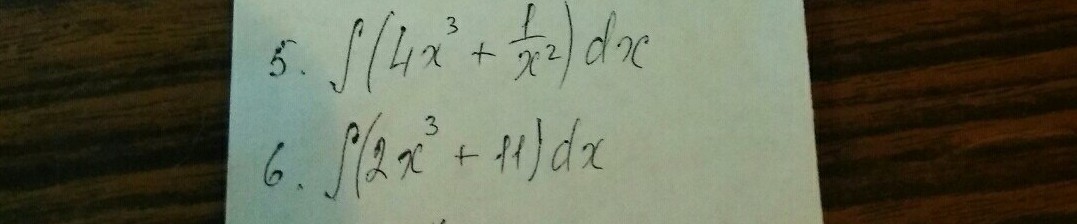 5. ∫(4x³ + 1/x²) dx
6. ∫(2x³ + 11) dx